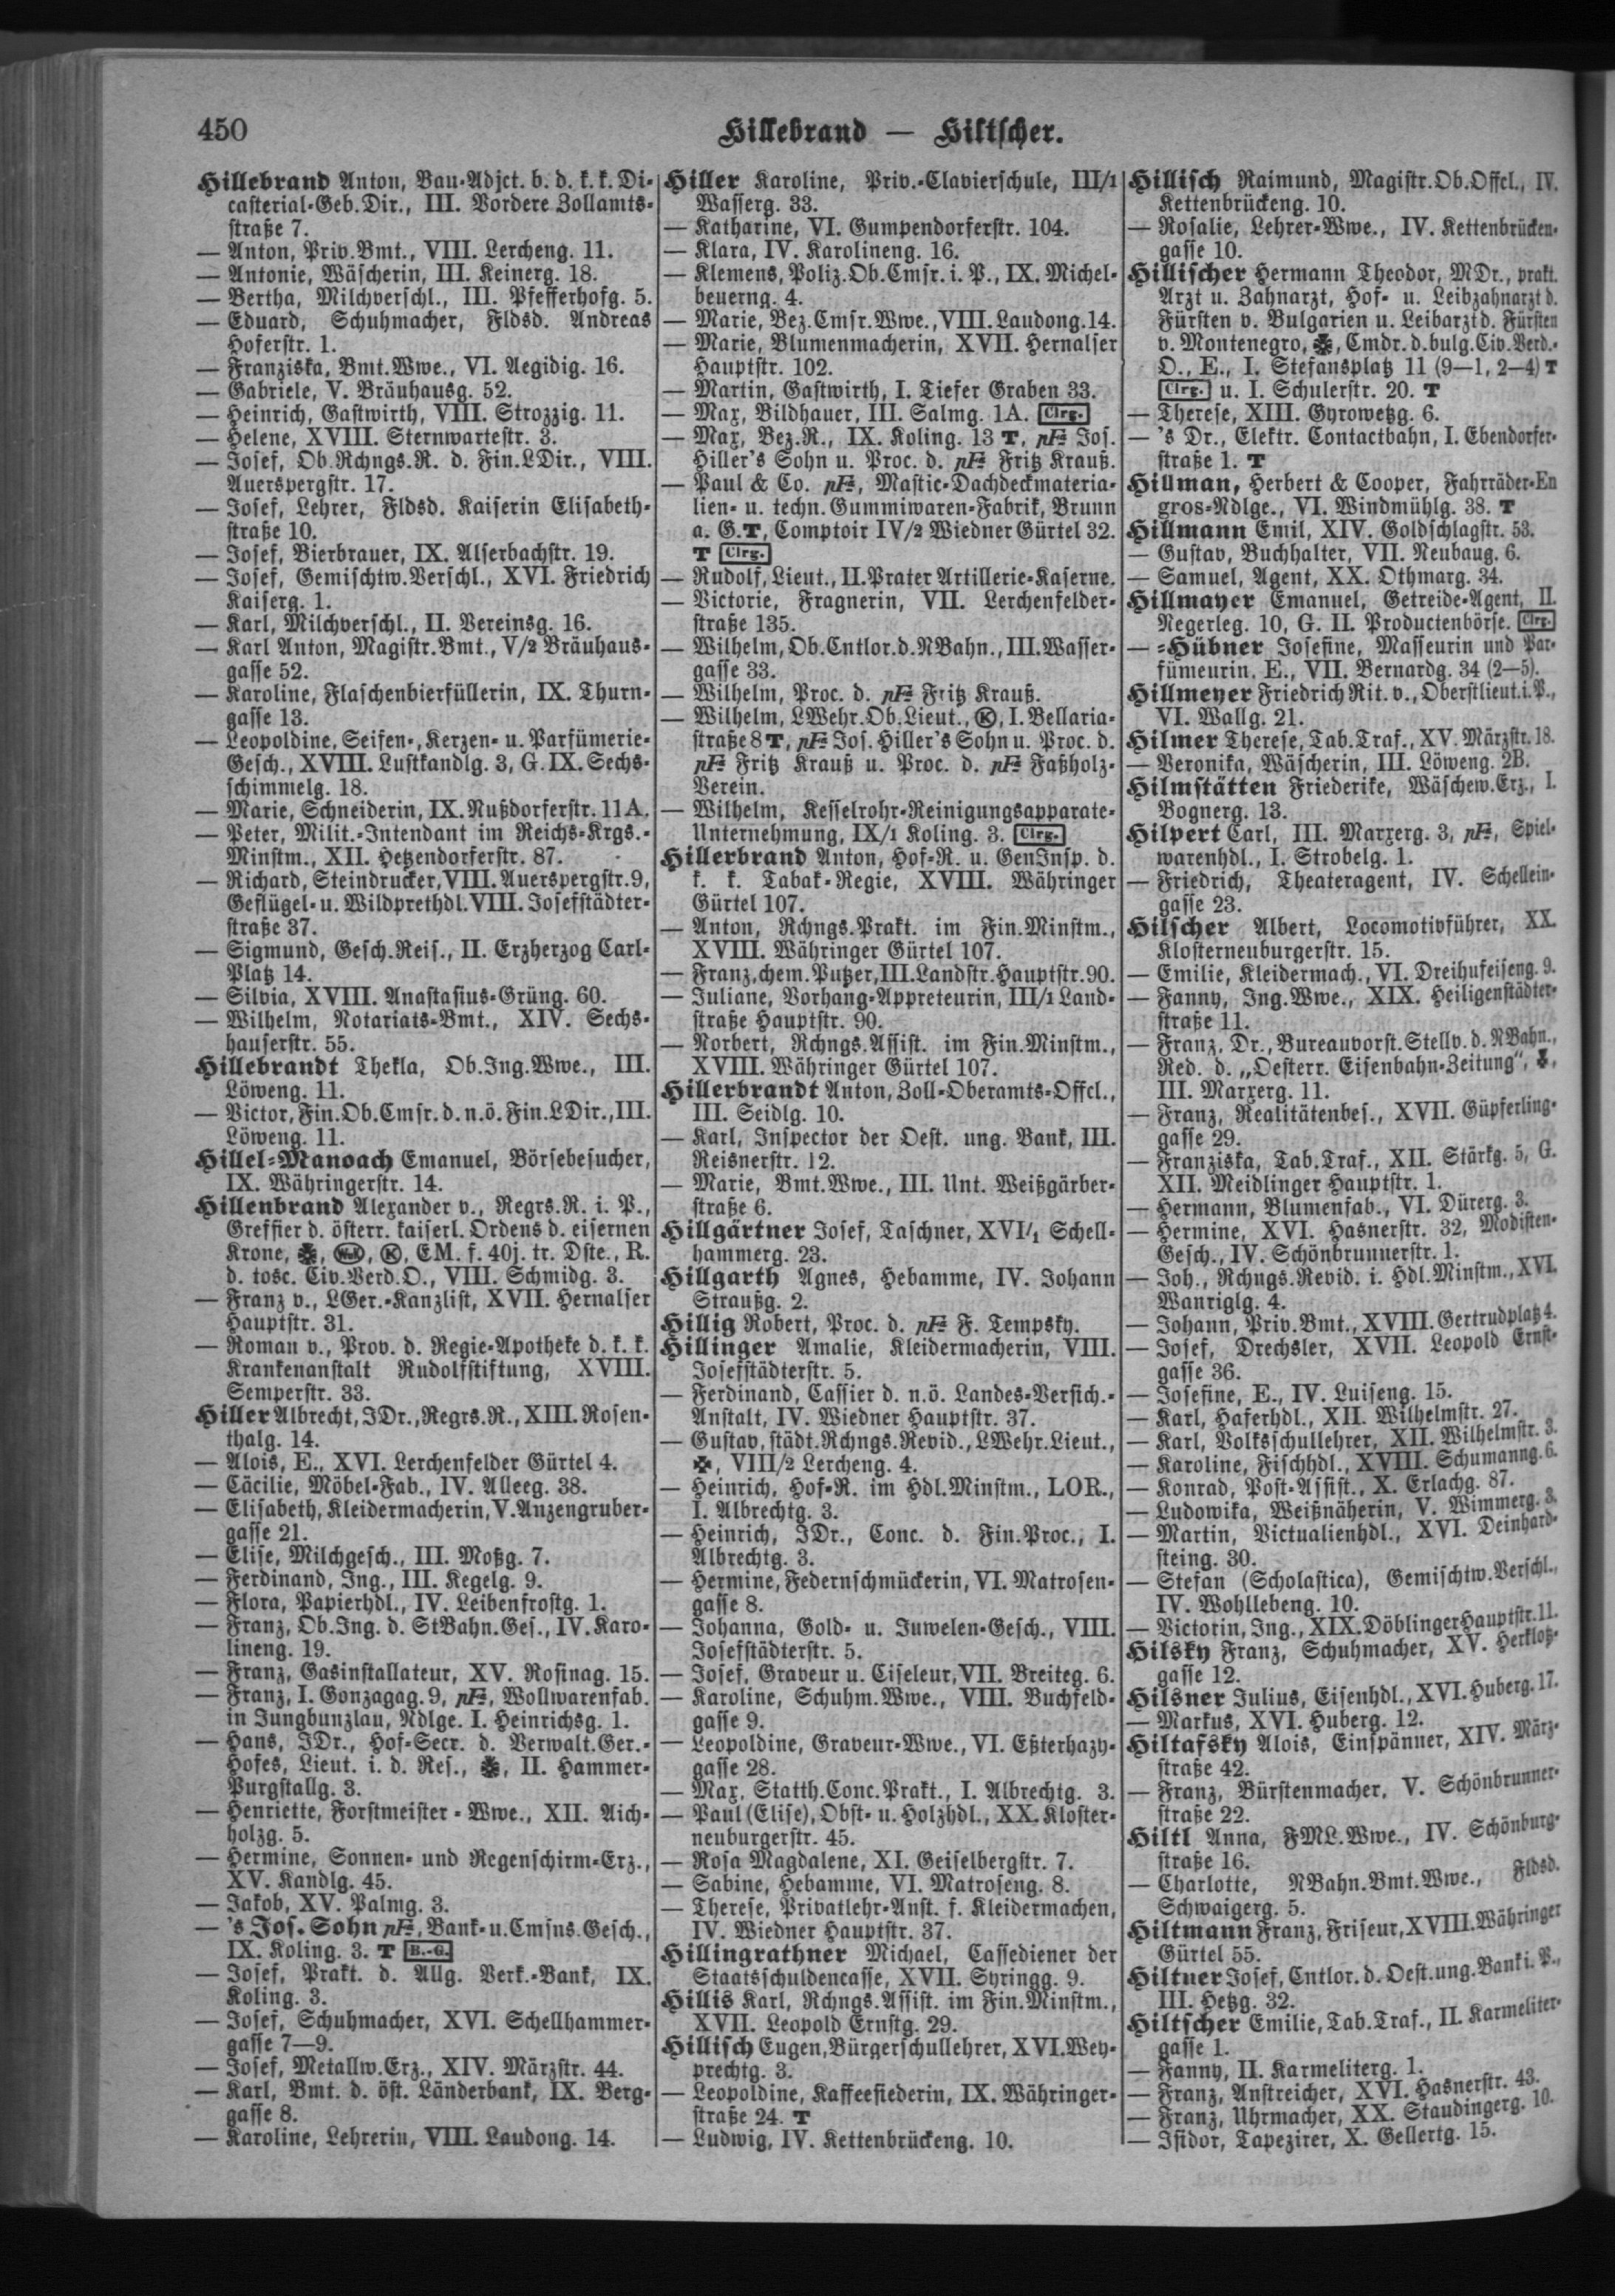 450
Hillebrand — Hiltscher.
Hillebrand Anton, Bau-Adjct. b. d. k. k. Di-
casterial-Geb.Dir., III. Vordere Zollamts-
straße 7.
— Anton, Priv.Bmt., VIII. Lercheng. 11.
— Antonie, Wäscherin, III. Keinerg. 18.
— Bertha, Milchverschl., III. Pfefferhofg. 5.
— Eduard, Schuhmacher, Fldsd. Andreas
Hoferstr. 1.
— Franziska, Bmt.Wwe., VI. Aegidig. 16.
— Gabriele, V. Bräuhausg. 52.
— Heinrich, Gastwirth, VIII. Strozzig. 11.
— Helene, XVIII. Sternwartestr. 3.
— Josef, Ob.Rchngs.R. d. Fin.LDir., VIII.
Auerspergstr. 17.
— Josef, Lehrer, Fldsd. Kaiserin Elisabeth-
straße 10.
— Josef, Bierbrauer, IX. Alserbachstr. 19.
— Josef, Gemischtw.Verschl., XVI. Friedrich
Kaiserg. 1.
— Karl, Milchverschl., II. Vereinsg. 16.
— Karl Anton, Magistr.Bmt., V/2 Bräuhaus-
gasse 52.
— Karoline, Flaschenbierfüllerin, IX. Thurn-
gasse 13.
— Leopoldine, Seifen-, Kerzen- u. Parfümerie-
Gesch., XVIII. Lustkandlg. 3, G. IX. Sechs-
schimmelg. 18.
— Marie, Schneiderin, IX. Nußdorferstr. 11A.
— Peter, Milit.-Intendant im Reichs-Krgs.-
Minstm., XII. Hetzendorferstr. 87.
— Richard, Steindrucker, VIII. Auerspergstr. 9,
Geflügel- u. Wildprethdl. VIII. Josefstädter-
straße 37.
— Sigmund, Gesch.Reis., II. Erzherzog Carl-
Platz 14.
— Silvia, XVIII. Anastasius-Grüng. 60.
— Wilhelm, Notariats-Bmt., XIV. Sechs-
hauserstr. 55.
Hillebrandt Thekla, Ob.Ing.Wwe., III.
Löweng. 11.
— Victor, Fin.Ob.Cmsr. d. n.ö. Fin.LDir., III.
Löweng. 11.
Hillel-Manoach Emanuel, Börsebesucher,
IX. Währingerstr. 14.
Hillenbrand Alexander v., Regrs.R. i. P.,
Greffier d. österr. kaiserl. Ordens d. eisernen
Krone, , , K, EM. f. 40j. tr. Dste., R.
d. tosc. Civ.Verd.O., VIII. Schmidg. 3.
— Franz v., LGer.-Kanzlist, XVII. Hernalser
Hauptstr. 31.
— Roman v., Prov. d. Regie-Apotheke d. k. k.
Krankenanstalt Rudolfstiftung, XVIII.
Semperstr. 33.
Hiller Albrecht, JDr., Regrs.R., XIII. Rosen-
thalg. 14.
— Alois, E., XVI. Lerchenfelder Gürtel 4.
— Cäcilie, Möbel-Fab., IV. Alleeg. 38.
— Elisabeth, Kleidermacherin, V. Anzengruber-
gasse 21.
— Elise, Milchgesch., III. Moßg. 7.
— Ferdinand, Ing., III. Kegelg. 9.
— Flora, Papierhdl., IV. Leibenfrostg. 1.
— Franz, Ob.Ing. d. StBahn.Ges., IV. Karo-
lineng. 19.
— Franz, Gasinstallateur, XV. Rosinag. 15.
— Franz, I. Gonzagag. 9, pF, Wollwarenfab.
in Jungbunzlau, Ndlge. I. Heinrichsg. 1.
— Hans, JDr., Hof-Secr. d. Verwalt.Ger.-
Hofes, Lieut. i. d. Res., , II. Hammer-
Purgstallg. 3.
— Henriette, Forstmeister-Wwe., XII. Aich-
holzg. 5.
— Hermine, Sonnen- und Regenschirm-Erz.,
XV. Kandlg. 45.
— Jakob, XV. Palmg. 3.
— 's Jos. Sohn pF, Bank- u. Cmsns.Gesch.,
IX. Koling. 3. T B.-G.
— Josef, Prakt. d. Allg. Verk.-Bank, IX.
Koling. 3.
— Josef, Schuhmacher, XVI. Schellhammer-
gasse 7—9.
— Josef, Metallw.Erz., XIV. Märzstr. 44.
— Karl, Bmt. d. öst. Länderbank, IX. Berg-
gasse 8.
— Karoline, Lehrerin, VIII. Laudong. 14.
Hiller Karoline, Priv.-Clavierschule, III/1
Wasserg. 33.
— Katharine, VI. Gumpendorferstr. 104.
— Klara, IV. Karolineng. 16.
— Klemens, Poliz.Ob.Cmsr. i. P., IX. Michel-
beuerng. 4.
— Marie, Bez.Cmsr.Wwe., VIII. Laudong. 14.
— Marie, Blumenmacherin, XVII. Hernalser
Hauptstr. 102.
— Martin, Gastwirth, I. Tiefer Graben 33.
— Max, Bildhauer, III. Salmg. 1A. Clrg.
— Max, Bez.R., IX. Koling. 13 T, pF Jos.
Hiller's Sohn u. Proc. d. pF Fritz Krauß.
— Paul & Co. pF, Mastic-Dachdeckmateria-
lien- u. techn. Gummiwaren-Fabrik, Brunn
a. G. T, Comptoir IV/2 Wiedner Gürtel 32.
T Clrg.
— Rudolf, Lieut., II. Prater Artillerie-Kaserne.
— Victorie, Fragnerin, VII. Lerchenfelder-
straße 135.
— Wilhelm, Ob.Cntlor. d. NBahn., III. Wasser-
gasse 33.
— Wilhelm, Proc. d. pF Fritz Krauß.
— Wilhelm, LWehr.Ob.Lieut., K, I. Bellaria-
straße 8 T, pF Jos. Hiller's Sohn u. Proc. d.
pF Fritz Krauß u. Proc. d. pF Faßholz-
Verein.
— Wilhelm, Kesselrohr-Reinigungsapparate-
Unternehmung, IX/1 Koling. 3. Clrg.
Hillerbrand Anton, Hof-R. u. GenInsp. d.
k. k. Tabak-Regie, XVIII. Währinger
Gürtel 107.
— Anton, Rchngs.Prakt. im Fin.Minstm.,
XVIII. Währinger Gürtel 107.
— Franz, chem. Putzer, III. Landstr.Hauptstr. 90.
— Juliane, Vorhang-Appreteurin, III/1 Land-
straße Hauptstr. 90.
— Norbert, Rchngs.Assist. im Fin.Minstm.,
XVIII. Währinger Gürtel 107.
Hillerbrandt Anton, Zoll-Oberamts-Offcl.,
III. Seidlg. 10.
— Karl, Inspector der Oest. ung. Bank, III.
Reisnerstr. 12.
— Marie, Bmt.Wwe., III. Unt. Weißgärber-
straße 6.
Hillgärtner Josef, Taschner, XVI/1 Schell-
hammerg. 23.
Hillgarth Agnes, Hebamme, IV. Johann
Straußg. 2.
Hillig Robert, Proc. d. pF F. Tempsky.
Hillinger Amalie, Kleidermacherin, VIII.
Josefstädterstr. 5.
— Ferdinand, Cassier d. n.ö. Landes-Versich.-
Anstalt, IV. Wiedner Hauptstr. 37.
— Gustav, städt. Rchngs.Revid., LWehr.Lieut.,
, VIII/2 Lercheng. 4.
— Heinrich, Hof-R. im Hdl.Minstm., LOR.,
I. Albrechtg. 3.
— Heinrich, JDr., Conc. d. Fin.Proc., I.
Albrechtg. 3.
— Hermine, Federnschmückerin, VI. Matrosen-
gasse 8.
— Johanna, Gold- u. Juwelen-Gesch., VIII.
Josefstädterstr. 5.
— Josef, Graveur u. Ciseleur, VII. Breiteg. 6.
— Karoline, Schuhm.Wwe., VIII. Buchfeld-
gasse 9.
— Leopoldine, Graveur-Wwe., VI. Eßterhazy-
gasse 28.
— Max, Statth.Conc.Prakt., I. Albrechtg. 3.
— Paul (Elise), Obst- u. Holzhdl., XX. Kloster-
neuburgerstr. 45.
— Rosa Magdalene, XI. Geiselbergstr. 7.
— Sabine, Hebamme, VI. Matroseng. 8.
— Therese, Privatlehr-Anst. f. Kleidermachen,
IV. Wiedner Hauptstr. 37.
Hillingrathner Michael, Cassediener der
Staatsschuldencasse, XVII. Syringg. 9.
Hillis Karl, Rchngs.Assist. im Fin.Minstm.,
XVII. Leopold Ernstg. 29.
Hillisch Eugen, Bürgerschullehrer, XVI. Wey-
prechtg. 3.
— Leopoldine, Kaffeesiederin, IX. Währinger-
straße 24. T
— Ludwig, IV. Kettenbrückeng. 10.
Hillisch Raimund, Magistr.Ob.Offcl., IV.
Kettenbrückeng. 10.
— Rosalie, Lehrer-Wwe., IV. Kettenbrücken-
gasse 10.
Hillischer Hermann Theodor, MDr., prakt.
Arzt u. Zahnarzt, Hof- u. Leibzahnarzt d.
Fürsten v. Bulgarien u. Leibarzt d. Fürsten
v. Montenegro, , Cmdr. d. bulg. Civ.Verd.-
O., E., I. Stefansplatz 11 (9—1, 2—4) T
Clrg. u. I. Schulerstr. 20. T
— Therese, XIII. Gyrowetzg. 6.
— 's Dr., Elektr. Contactbahn, I. Ebendorfer-
straße 1. T
Hillman, Herbert & Cooper, Fahrräder-En
gros-Ndlge., VI. Windmühlg. 38. T
Hillmann Emil, XIV. Goldschlagstr. 53.
— Gustav, Buchhalter, VII. Neubaug. 6.
— Samuel, Agent, XX. Othmarg. 34.
Hillmayer Emanuel, Getreide-Agent, II.
Negerleg. 10, G. II. Productenbörse. Clrg.
— -Hübner Josefine, Masseurin und Par-
fümeurin, E., VII. Bernardg. 34 (2—5).
Hillmeyer Friedrich Rit. v., Oberstlieut. i. P.,
VI. Wallg. 21.
Hilmer Therese, Tab.Traf., XV. Märzstr. 18.
— Veronika, Wäscherin, III. Löweng. 2B.
Hilmstätten Friederike, Wäschew.Erz., I.
Bognerg. 13.
Hilpert Carl, III. Marxerg. 3, pF, Spiel-
warenhdl., I. Strobelg. 1.
— Friedrich, Theateragent, IV. Schellein-
gasse 23.
Hilscher Albert, Locomotivführer, XX.
Klosterneuburgerstr. 15.
— Emilie, Kleidermach., VI. Dreihufeiseng. 9.
— Fanny, Ing.Wwe., XIX. Heiligenstädter-
straße 11.
— Franz, Dr., Bureauvorst.Stellv. d. NBahn.,
Red. d. „Oesterr. Eisenbahn-Zeitung", ,
III. Marxerg. 11.
— Franz, Realitätenbes., XVII. Güpferling-
gasse 29.
— Franziska, Tab.Traf., XII. Stärkg. 5, G.
XII. Meidlinger Hauptstr. 1.
— Hermann, Blumenfab., VI. Dürerg. 3.
— Hermine, XVI. Hasnerstr. 32, Modisten-
Gesch., IV. Schönbrunnerstr. 1.
— Joh., Rchngs.Revid. i. Hdl.Minstm., XVI.
Wanriglg. 4.
— Johann, Priv.Bmt., XVIII. Gertrudplatz 4.
— Josef, Drechsler, XVII. Leopold Ernst-
gasse 36.
— Josefine, E., IV. Luiseng. 15.
— Karl, Haferhdl., XII. Wilhelmstr. 27.
— Karl, Volksschullehrer, XII. Wilhelmstr. 3.
— Karoline, Fischhdl., XVIII. Schumanng. 6.
— Konrad, Post-Assist., X. Erlachg. 87.
— Ludowika, Weißnäherin, V. Wimmerg. 3.
— Martin, Victualienhdl., XVI. Deinhard-
steing. 30.
— Stefan (Scholastica), Gemischtw.Verschl.,
IV. Wohllebeng. 10.
— Victorin, Ing., XIX. Döblinger Hauptstr. 11.
Hilsky Franz, Schuhmacher, XV. Herklotz-
gasse 12.
Hilsner Julius, Eisenhdl., XVI. Huberg. 17.
— Markus, XVI. Huberg. 12.
Hiltafsky Alois, Einspänner, XIV. März-
straße 42.
— Franz, Bürstenmacher, V. Schönbrunner-
straße 22.
Hiltl Anna, FML.Wwe., IV. Schönburg-
straße 16.
— Charlotte, NBahn.Bmt.Wwe., Fldsd.
Schwaigerg. 5.
Hiltmann Franz, Friseur, XVIII. Währinger
Gürtel 55.
Hiltner Josef, Cntlor. d. Oest. ung. Bank i. P.,
III. Hetzg. 32.
Hiltscher Emilie, Tab.Traf., II. Karmeliter-
gasse 1.
— Fanny, II. Karmeliterg. 1.
— Franz, Anstreicher, XVI. Hasnerstr. 43.
— Franz, Uhrmacher, XX. Staudingerg. 10.
— Isidor, Tapezirer, X. Gellertg. 15.